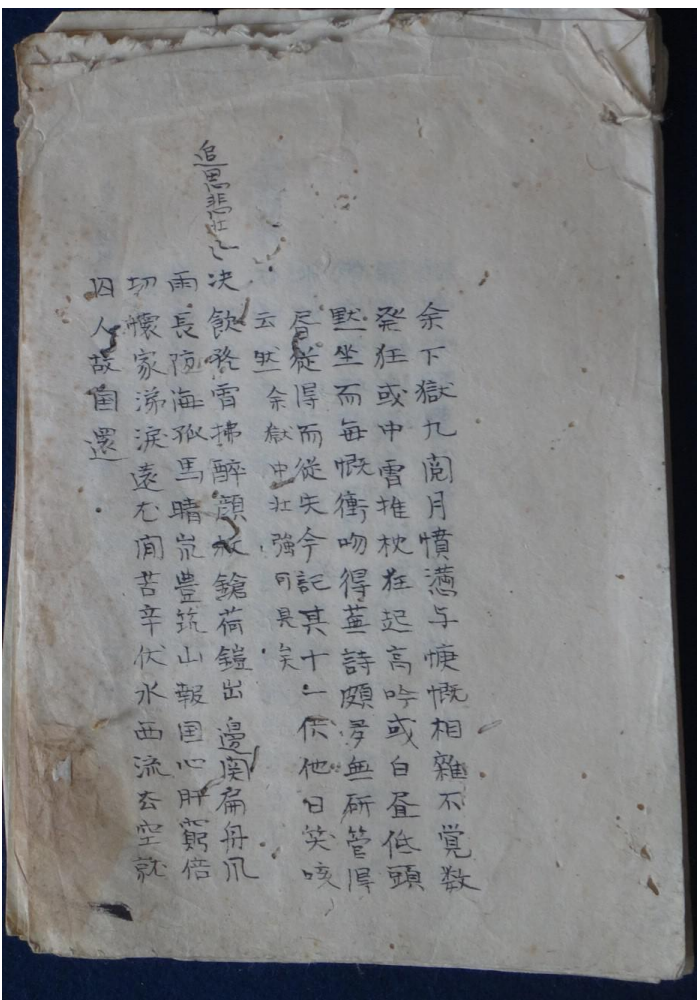 余下獄九閲月憤懣与慷慨相雜不覚数
発狂或中霄推枕狂起高吟或白昼低頭
默坐而每慨衝吻得蕪詩頗多無研管得
昼従得而従失今記其十一供他日笑咳
云然余獄中壮強可見矣
追思悲壮之
决飲発雪拂醉顔 鎗荷鎧出邊関扁舟爪
雨長 海孤馬晴 豊筑山報国心肝窮倍
切懐家涕淚遠尤 苦辛伏水西流去空就
囚人故国還